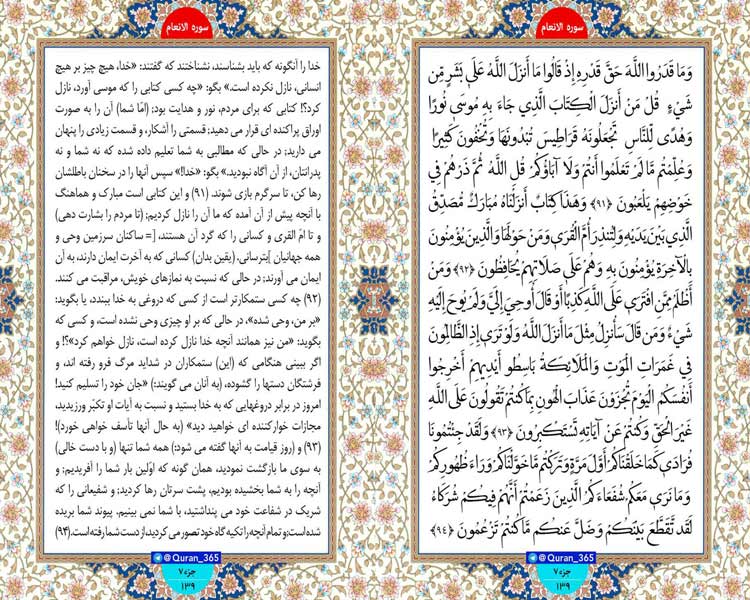 سوره الانعام
وَمَا قَدَرُوا اللَّهَ حَقَّ قَدْرِهِ إِذْ قَالُوا مَا أَنزَلَ اللَّهُ عَلَىٰ بَشَرٍ مِّن
شَيْءٍ قُلْ مَنْ أَنزَلَ الْكِتَابَ الَّذِي جَاءَ بِهِ مُوسَىٰ نُورًا
وَهُدًى لِّلنَّاسِ تَجْعَلُونَهُ قَرَاطِيسَ تُبْدُونَهَا وَتُخْفُونَ كَثِيرًا
وَعُلِّمْتُم مَّا لَمْ تَعْلَمُوا أَنتُمْ وَلَا آبَاؤُكُمْ قُلِ اللَّهُ ثُمَّ ذَرْهُمْ فِي
خَوْضِهِمْ يَلْعَبُونَ ﴿۹۱﴾ وَهَٰذَا كِتَابٌ أَنزَلْنَاهُ مُبَارَكٌ مُّصَدِّقُ
الَّذِي بَيْنَ يَدَيْهِ وَلِتُنذِرَ أُمَّ الْقُرَىٰ وَمَنْ حَوْلَهَا وَالَّذِينَ يُؤْمِنُونَ
بِالْآخِرَةِ يُؤْمِنُونَ بِهِ وَهُمْ عَلَىٰ صَلَاتِهِمْ يُحَافِظُونَ ﴿۹۲﴾ وَمَنْ
أَظْلَمُ مِمَّنِ افْتَرَىٰ عَلَى اللَّهِ كَذِبًا أَوْ قَالَ أُوحِيَ إِلَيَّ وَلَمْ يُوحَ إِلَيْهِ
شَيْءٌ وَمَن قَالَ سَأُنزِلُ مِثْلَ مَا أَنزَلَ اللَّهُ وَلَوْ تَرَىٰ إِذِ الظَّالِمُونَ
فِي غَمَرَاتِ الْمَوْتِ وَالْمَلَائِكَةُ بَاسِطُو أَيْدِيهِمْ أَخْرِجُوا
أَنفُسَكُمُ الْيَوْمَ تُجْزَوْنَ عَذَابَ الْهُونِ بِمَا كُنتُمْ تَقُولُونَ عَلَى اللَّهِ
غَيْرَ الْحَقِّ وَكُنتُمْ عَنْ آيَاتِهِ تَسْتَكْبِرُونَ ﴿۹۳﴾ وَلَقَدْ جِئْتُمُونَا
فُرَادَىٰ كَمَا خَلَقْنَاكُمْ أَوَّلَ مَرَّةٍ وَتَرَكْتُم مَّا خَوَّلْنَاكُمْ وَرَاءَ ظُهُورِكُمْ
وَمَا نَرَىٰ مَعَكُمْ شُفَعَاءَكُمُ الَّذِينَ زَعَمْتُمْ أَنَّهُمْ فِيكُمْ شُرَكَاءُ
لَقَد تَّقَطَّعَ بَيْنَكُمْ وَضَلَّ عَنكُم مَّا كُنتُمْ تَزْعُمُونَ ﴿۹۴﴾
@Quran_365
جزء۷
۱۳۹
سوره الانعام
خدا را آنگونه که باید بشناسند، نشناختند که گفتند: «خدا، هیچ چیز بر هیچ
انسانی، نازل نکرده است.» بگو: «چه کسی کتابی را که موسی آورد، نازل
کرد؟! کتابی که برای مردم، نور و هدایت بود; (امّا شما) آن را به صورت
اوراق پراکنده ای قرار می دهید; قسمتی را آشکار، و قسمت زیادی را پنهان
می دارید; در حالی که مطالبی به شما تعلیم داده شده که نه شما و نه
پدرانتان، از آن آگاه نبودید.» بگو: «خدا!» سپس آنها را در سخنان باطلشان
رها کن، تا سرگرم بازی شوند. (۹۱) و این کتابی است مبارک و هماهنگ
با آنچه پیش از آن آمده که ما آن را نازل کردیم; (تا مردم را بشارت دهی)
و تا امّ القری و کسانی را که گرد آن هستند، [= ساکنان سرزمین وحی و
همه جهانیان ]بترسانی. (یقین بدان) کسانی که به آخرت ایمان دارند، به آن
ایمان می آورند; در حالی که نسبت به نمازهای خویش، مراقبت می کنند.
(۹۲) چه کسی ستمکارتر است از کسی که دروغی به خدا ببندد، یا بگوید:
«بر من، وحی شده»، در حالی که بر او چیزی وحی نشده است، و کسی که
بگوید: «من نیز همانند آنچه خدا نازل کرده است، نازل خواهم کرد»؟! و
اگر ببینی هنگامی که (این) ستمکاران در شداید مرگ فرو رفته اند، و
فرشتگان دستها را گشوده، (به آنان می گویند:) «جان خود را تسلیم کنید!
امروز در برابر دروغهایی که به خدا بستید و نسبت به آیات او تکبّر ورزیدید،
مجازات خوارکننده ای خواهید دید» (به حال آنها تأسف خواهی خورد)!
(۹۳) و (روز قیامت به آنها گفته می شود:) همه شما تنها (و با دست خالی)
به سوی ما بازگشت نمودید، همان گونه که اوّلین بار شما را آفریدیم; و
آنچه را به شما بخشیده بودیم، پشت سرتان رها کردید; و شفیعانی را که
شریک در شفاعت خود می پنداشتید، با شما نمی بینیم. پیوند شما بریده
شده است; و تمام آنچه را تکیه گاه خود تصور می کردید، از دست شما رفته است. (۹۴)
@Quran_365
جزء۷
۱۳۹